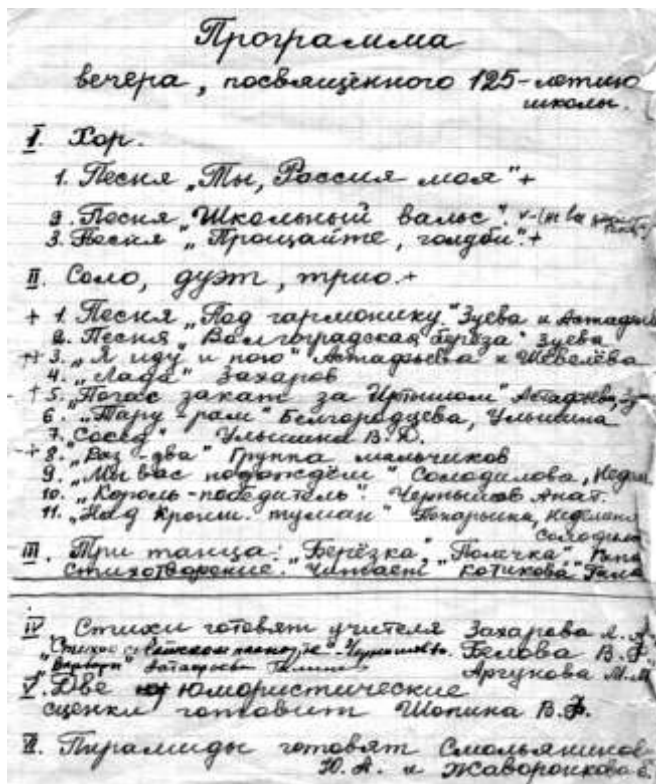 Программа
вечера, посвящённого 125-летию
школы.
I. Хор.
1. Песня „Ты, Россия моя" +
2. Песня „Школьный вальс".
3. Песня „Прощайте, голуби" +
II. Соло, дуэт, трио. +
+ 1. Песня „Под гармонику" Зуева и
2. Песня „Волгоградская берёза" Зуева
3. „Я иду и пою" Астафьева и Шевелёва
4. „Лада" Захаров
+ 5. „Погас закат за Иртышом"
6. „Тару-рам" Белгородцева, Улышина
7. „Сосед" Улышина В.Д.
+ 8. „Раз-два" Группа мальчиков
9. „Мы вас подождём" Солодилова,
10. „Король-победитель". Чернышов Анат.
11. „Над Кронш. туман"
III. Три танца: „Берёзка", „Полечка",
Стихотворение. Читает Котикова
IV. Стихи готовят учителя Захарова А.А.
Белова В.Ф.
Аргунова М.М.
V. Две юмористические
сценки готовит Шопина В.Ф.
VI. Пирамиды готовят
Ю.А. и Жаворонкова